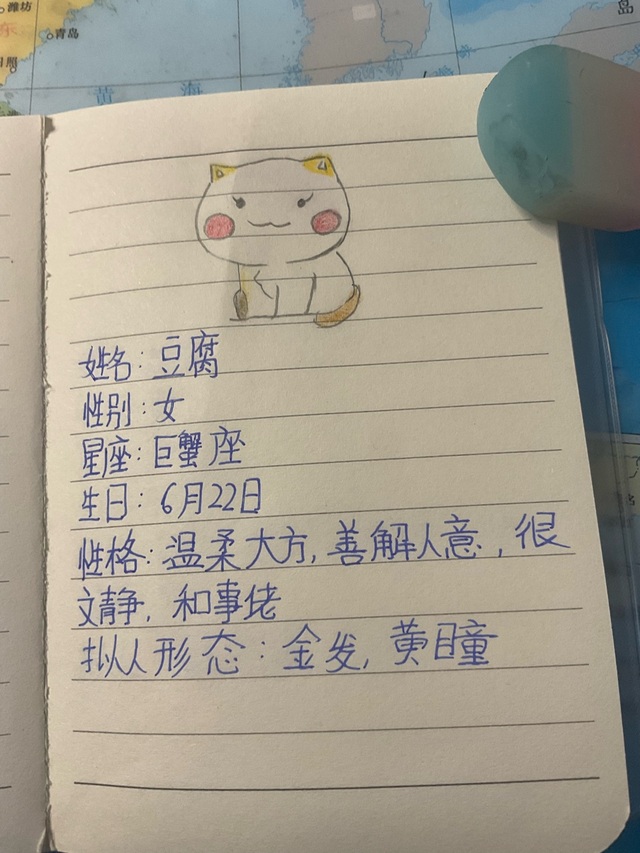 潍坊
青岛
黄海
岛
姓名：豆腐
性别：女
星座：巨蟹座
生日：6月22日
性格：温柔大方，善解人意，很
文静，和事佬
拟人形态：金发，黄瞳